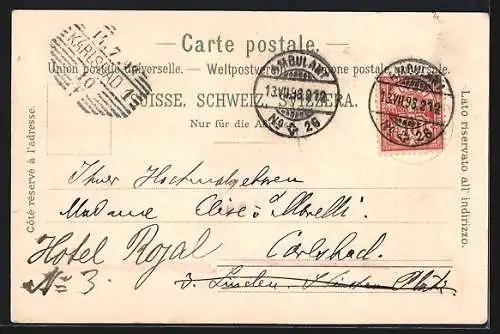 Carte postale.
Union postale universelle. — Weltpostverein. — Unione postale universale.
SUISSE. SCHWEIZ. SVIZZERA.
Nur für die
Côté réservé à l'adresse.
Lato riservato all'indirizzo.
AMBULANT
13.VII.98.212
No 26
AMBULANT
13.VII.98.212
No 26
14.7
KARLSBAD 1
Ihrer Hochwohlgeboren
Madame Elise d Morelli
Hotel Royal Carlsbad.
No 3. 3. Linden.